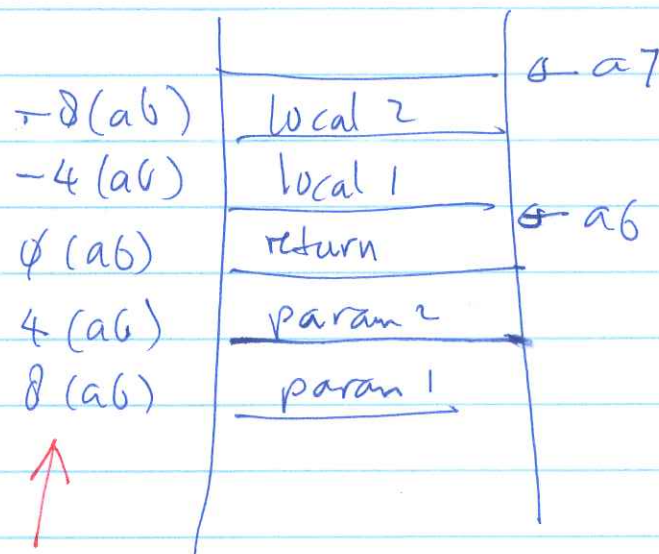 ← a7
-8(a6) local 2
-4(a6) local 1
← a6
0(a6) return
4(a6) param 2
8(a6) param 1